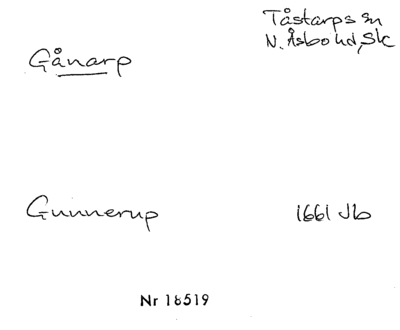 Tåstarps sn
Gånarp N. Åsbo hd, Sk
Gunnerup 1661 Jb
Nr 18519